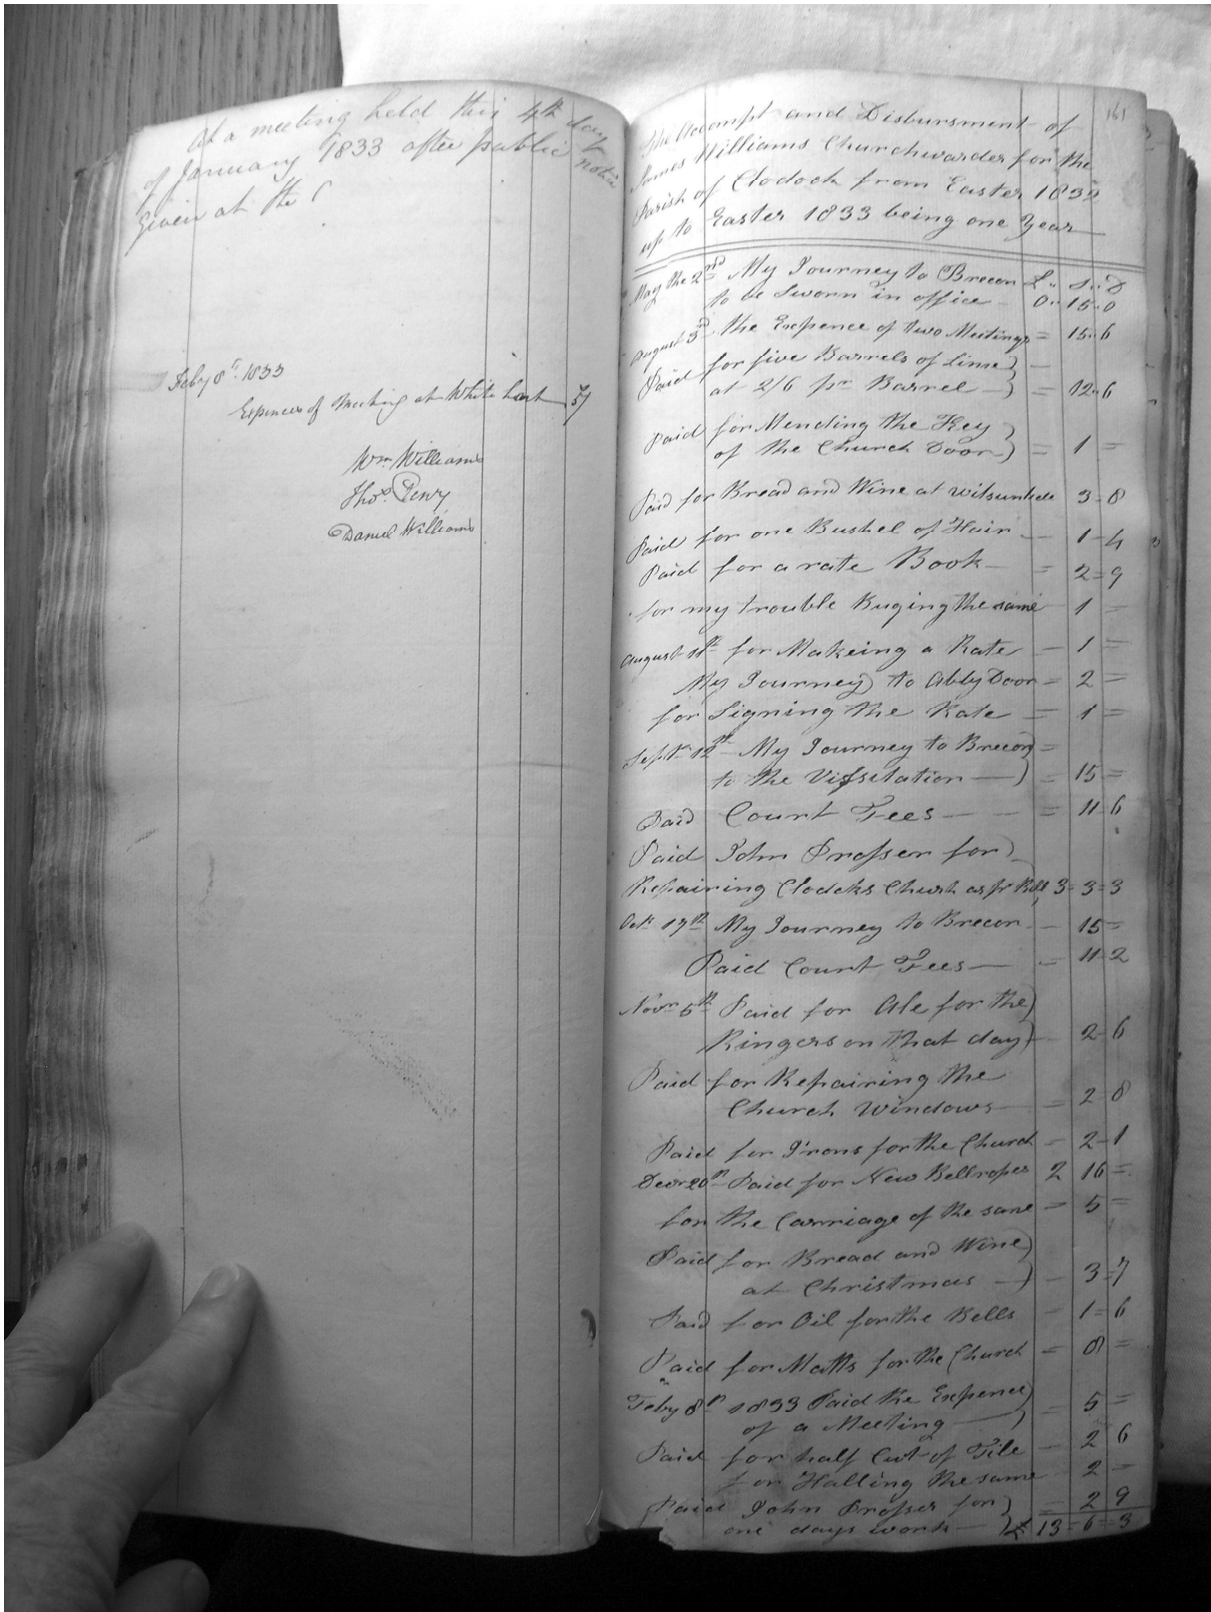 At a meeting held this 4th day
of January 1833 after public notice
Given at the C
Feby 8th 1833
Expences of Meeting at White hart 5/
Wm Williams
Thos Penry
Daniel Williams
161
The Accompt and Disbursment of
James Williams Churchwarden for the
Parish of Clodock from Easter 1832
up to Easter 1833 being one Year
May the 2nd My Journey to Brecon £ .. S .. D
to be Sworn in office — 0 .. 15 .. 0
August 3rd the Expence of two Meetings = 15 .. 6
Paid for five Barrels of Lime) —
at 2/6 pr Barrel —) = 12 .. 6
Paid for Mending the Key)
of the Church Door) = 1 =
Paid for Bread and Wine at Witsuntide 3 = 8
Paid for one Bushel of Hair — 1 - 4
Paid for a rate Book — = 2 = 9
for my trouble Buging the same 1 =
August 11th for Makeing a Rate — 1 =
My Journey to Abby Door = 2 =
for Signing the Rate = 1 =
Septr 12th My Journey to Brecon) =
to the Vissitation —) = 15 =
Paid Court Fees — — = 11 - 6
Paid John Prosser for) —
Repairing Clodcks Church as pr Bill 3 = 3 = 3
Oct 19th My Journey to Brecon — 15 =
Paid Court Fees — = 11 = 2
Novr 5th Paid for Ale for the)
Ringers on that day) — 2 = 6
Paid for Repairing the
Church Windows — = 2 = 8
Paid for Irons for the Church = 2 - 1
Decr 20th Paid for New Bellropes 2 16 =
for the Carriage of the same = 5 =
Paid for Bread and Wine)
at Christmas —) — 3 = 7
Paid for Oil for the Bells — 1 = 6
Paid for Matts for the Church = 8 =
Feby 8th 1833 Paid the Expence)
of a Meeting —) = 5 =
Paid for half Cwt of Tile — 2 6
for Halling the same 2 =
Paid John Prosser for) = 2 9
one days work —) £ 13 = 6 = 3